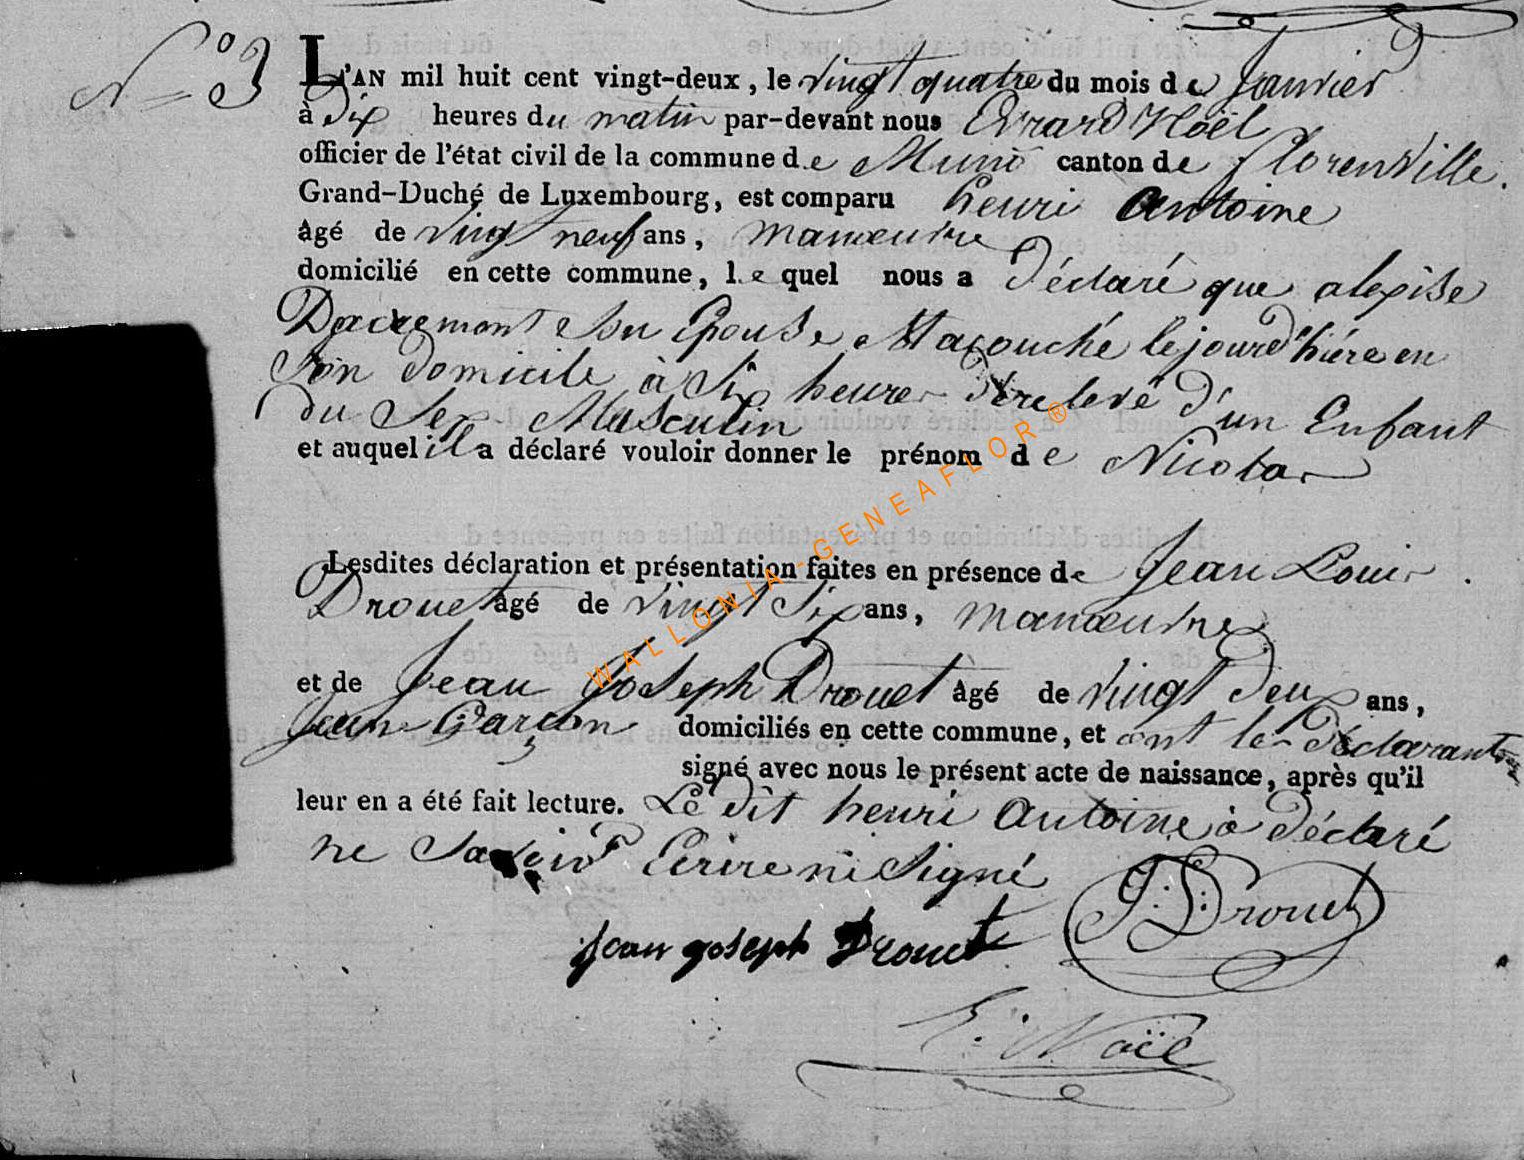 N° 3
L'AN mil huit cent vingt-deux, le vingt quatre du mois de Janvier
à Dix heures du matin par-devant nous Evrard Noël
officier de l'état civil de la commune de Muno canton de florenville.
Grand-Duché de Luxembourg, est comparu henri Antoine
âgé de vingt neuf ans, manœuvre
domicilié en cette commune, le quel nous a déclaré que alexise
son Epouse acouché le jourd'hiére en
son domicile à Six heures relevé d'un Enfant
du Sex Masculin
et auquel il a déclaré vouloir donner le prénom de Nicolas
Lesdites déclaration et présentation faites en présence de Jean Louis
Drouet âgé de vingt Six ans, manœuvre
et de Jean Joseph Drouet âgé de vingt deux ans,
Jeune Garçon domiciliés en cette commune, et ont les Déclarants
signé avec nous le présent acte de naissance, après qu'il
leur en a été fait lecture. Le dit henri Antoine à déclaré
ne Savoir Ecrire ni Signé
J: L: Drouet
Jean joseph Drouet
E: Noël
WALLONIA-GENEAFLOR®